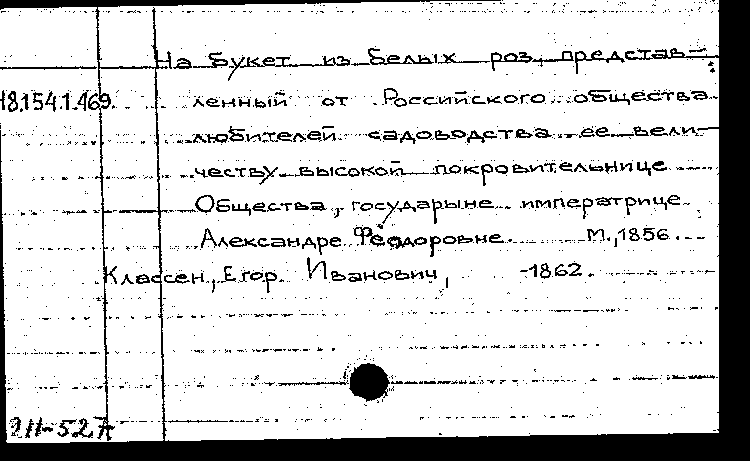 На букет из белых роз, представ-
18.154.1.469. ленный от Российского общества
любителей садоводства ее вели-
честву высокой покровительнице
Общества, государыне императрице
Александре Фёодоровне. М., 1856.
Классен, Егор Иванович, -1862.
211-52А